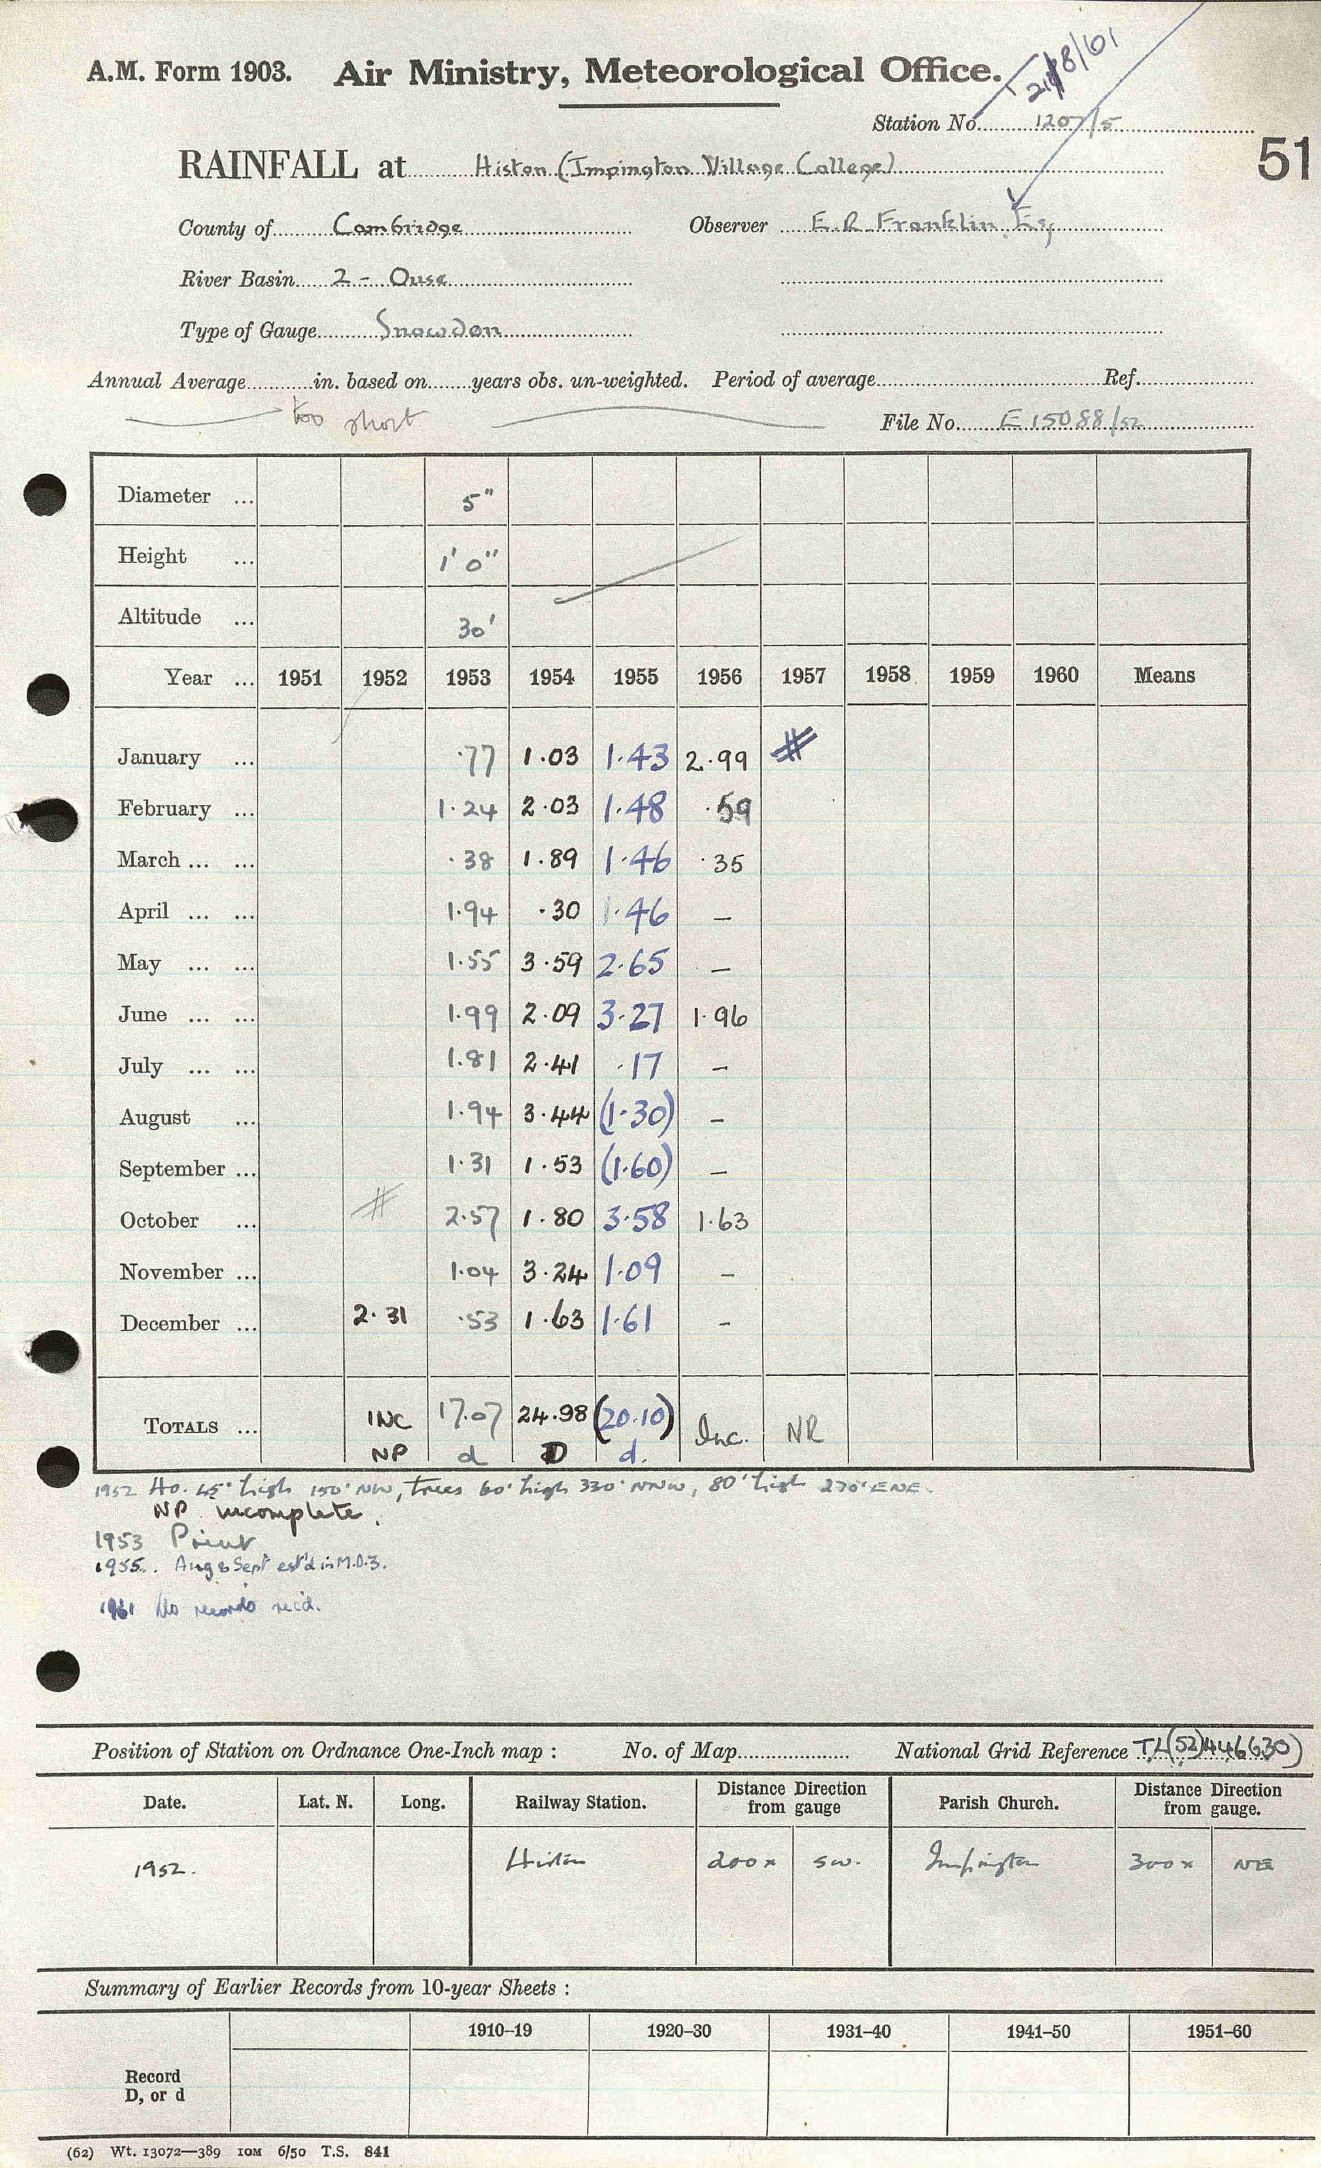 A.M. Form 1903. Air Ministry, Meteorological Office. 21/8/61
Station No. 1207/5
51
RAINFALL at Histon (Impington Village College)
County of Cambridge Observer E.R. Franklin, Esq
River Basin 2 - Ouse
Type of Gauge Snowdon
Annual Average in. based on years obs. un-weighted. Period of average Ref.
too short File No. E 15088/52
Diameter ... 5"
Height ... 1' 0"
Altitude ... 30'
Year ... 1951 1952 1953 1954 1955 1956 1957 1958 1959 1960 Means
January ... .77 1.03 1.43 2.99 #
February ... 1.24 2.03 1.48 .59
March ... ... .38 1.89 1.46 .35
April ... ... 1.94 .30 1.46 –
May ... ... 1.55 3.59 2.65 –
June ... ... 1.99 2.09 3.27 1.96
July ... ... 1.81 2.41 .17 –
August ... 1.94 3.44 (1.30) –
September ... 1.31 1.53 (1.60) –
October ... # 2.57 1.80 3.58 1.63
November ... 1.04 3.24 1.09 –
December ... 2.31 .53 1.63 1.61 –
TOTALS ... INC 17.07 24.98 (20.10) Inc. NR
NP d D d.
1952 Ho. 45' high 150' NW, trees 60' high 330' NNW, 80' high 270' ENE.
NP incomplete.
1953 Print
1955. Aug & Sept est'd in M.O.3.
1961 No records rec'd.
Position of Station on Ordnance One-Inch map : No. of Map National Grid Reference TL(52)446630)
Date. Lat. N. Long. Railway Station. Distance Direction from gauge Parish Church. Distance Direction from gauge.
1952. Histon 200x SW. Impington 300x NE
Summary of Earlier Records from 10-year Sheets :
1910–19 1920–30 1931–40 1941–50 1951–60
Record
D, or d
(62) Wt. 13072—389 10M 6/50 T.S. 841